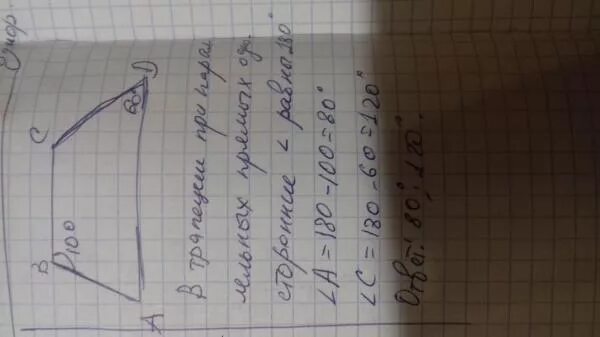 B
C
100
60°
A
D
В трапеции при парал
лельных прямых одно
сторонние < равны 180°
∠A = 180-100=80°
∠C = 180-60=120°
Ответ: 80°; 120°.